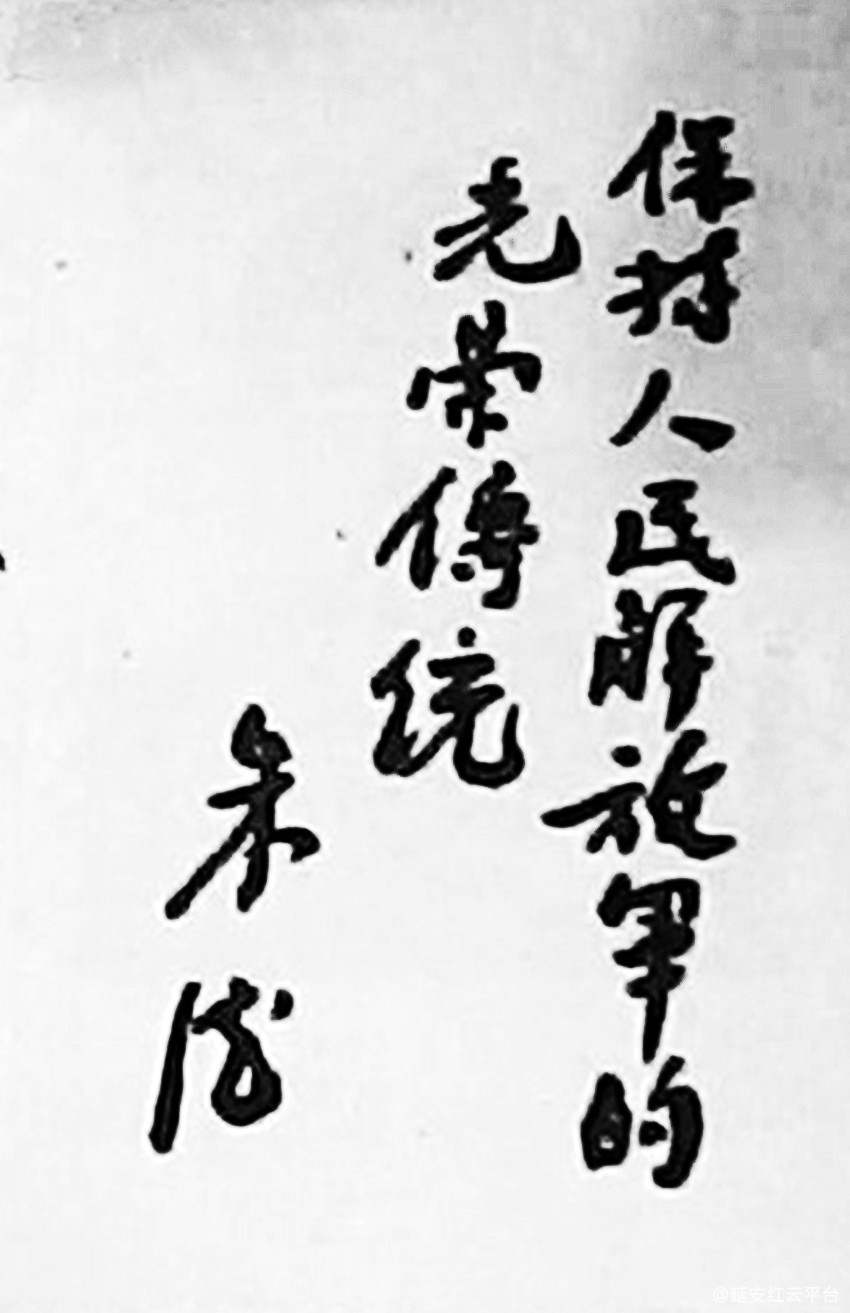 保持人民解放軍的
光荣傳统
朱德
@延安红云平台